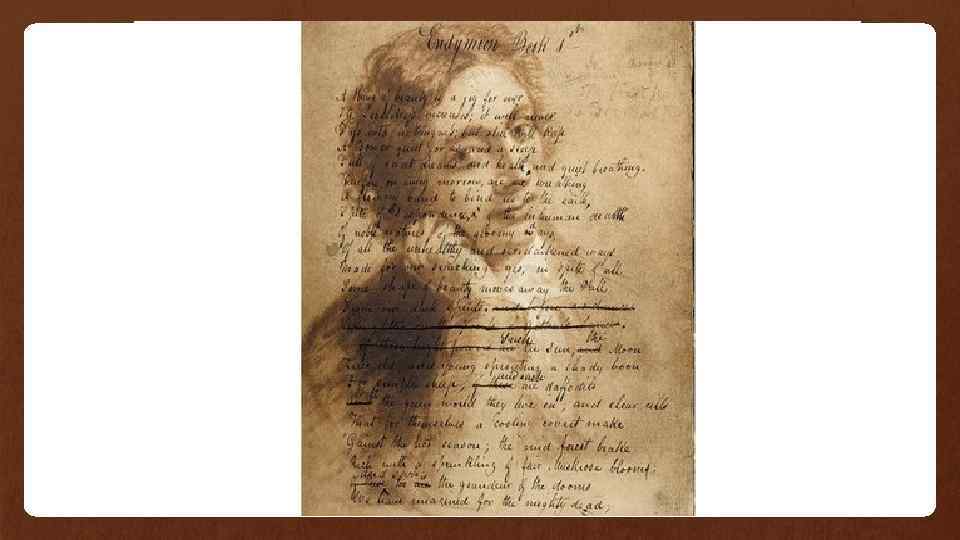 Endymion Book 1st
A thing of beauty is a joy for ever
Its Loveliness increases; it will never
Pass into nothingness; but still will keep
A Bower quiet for us, and a sleep
Full of sweet dreams and health, and quiet breathing.
Therefore on every morrow, are we wreathing
A flowery band to bind us to the earth,
Spite of despondence, of the inhuman dearth
Of noble natures, of the gloomy days
Of all the unhealthy and
Made for our searching; yes, in spite of all
Some shape of beauty moves away the Pall
From our dark Spirits.
Such the
the Sun and Moon
Trees old, and young sprouting a shady boon
For simple sheep, and such are daffodils
With the green world they live in, and clear rills
That for themselves a cooling covert make
'Gainst the hot season; the mid forest brake
Rich with a sprinkling of fair Muskrose blooms:
the grandeur of the dooms
We have imagined for the mighty dead;